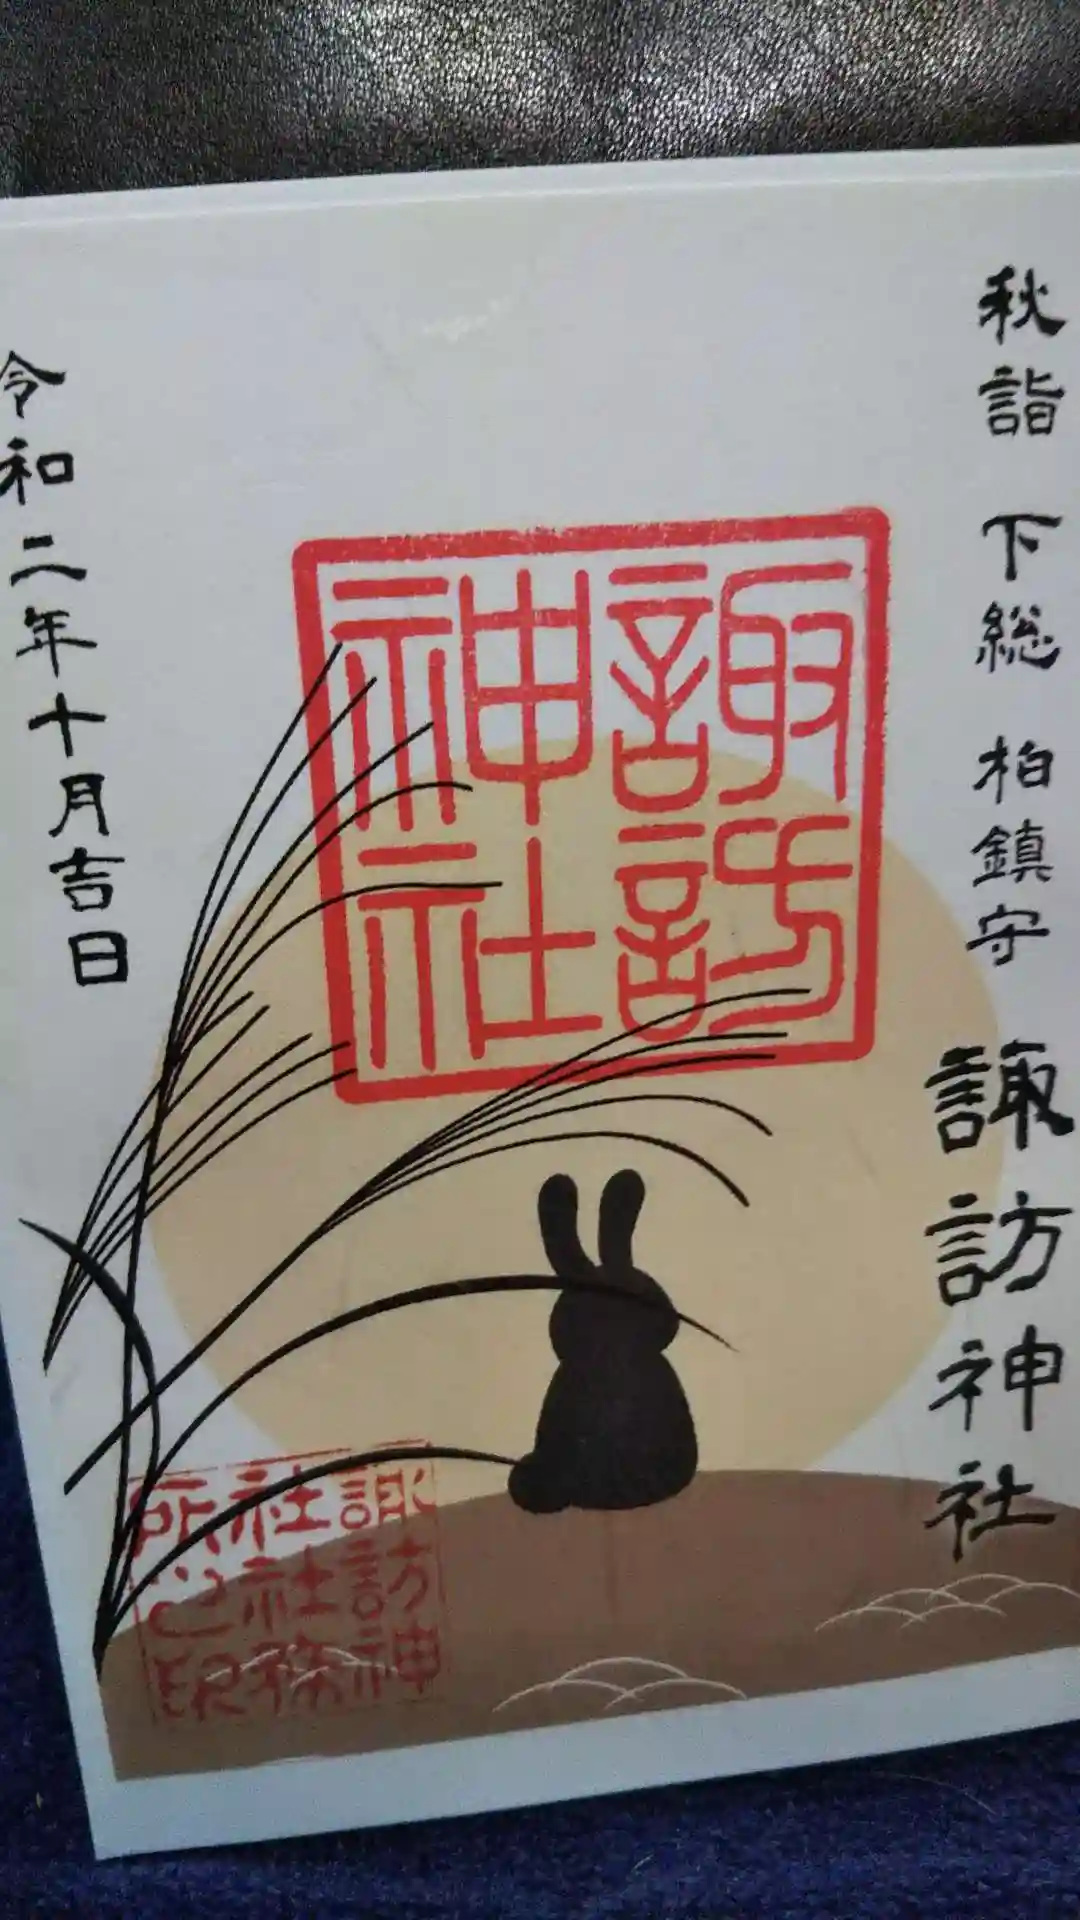 秋詣 下総 柏鎮守 諏訪神社
諏訪
神社
令和二年十月吉日
諏訪神
社社務
所之印